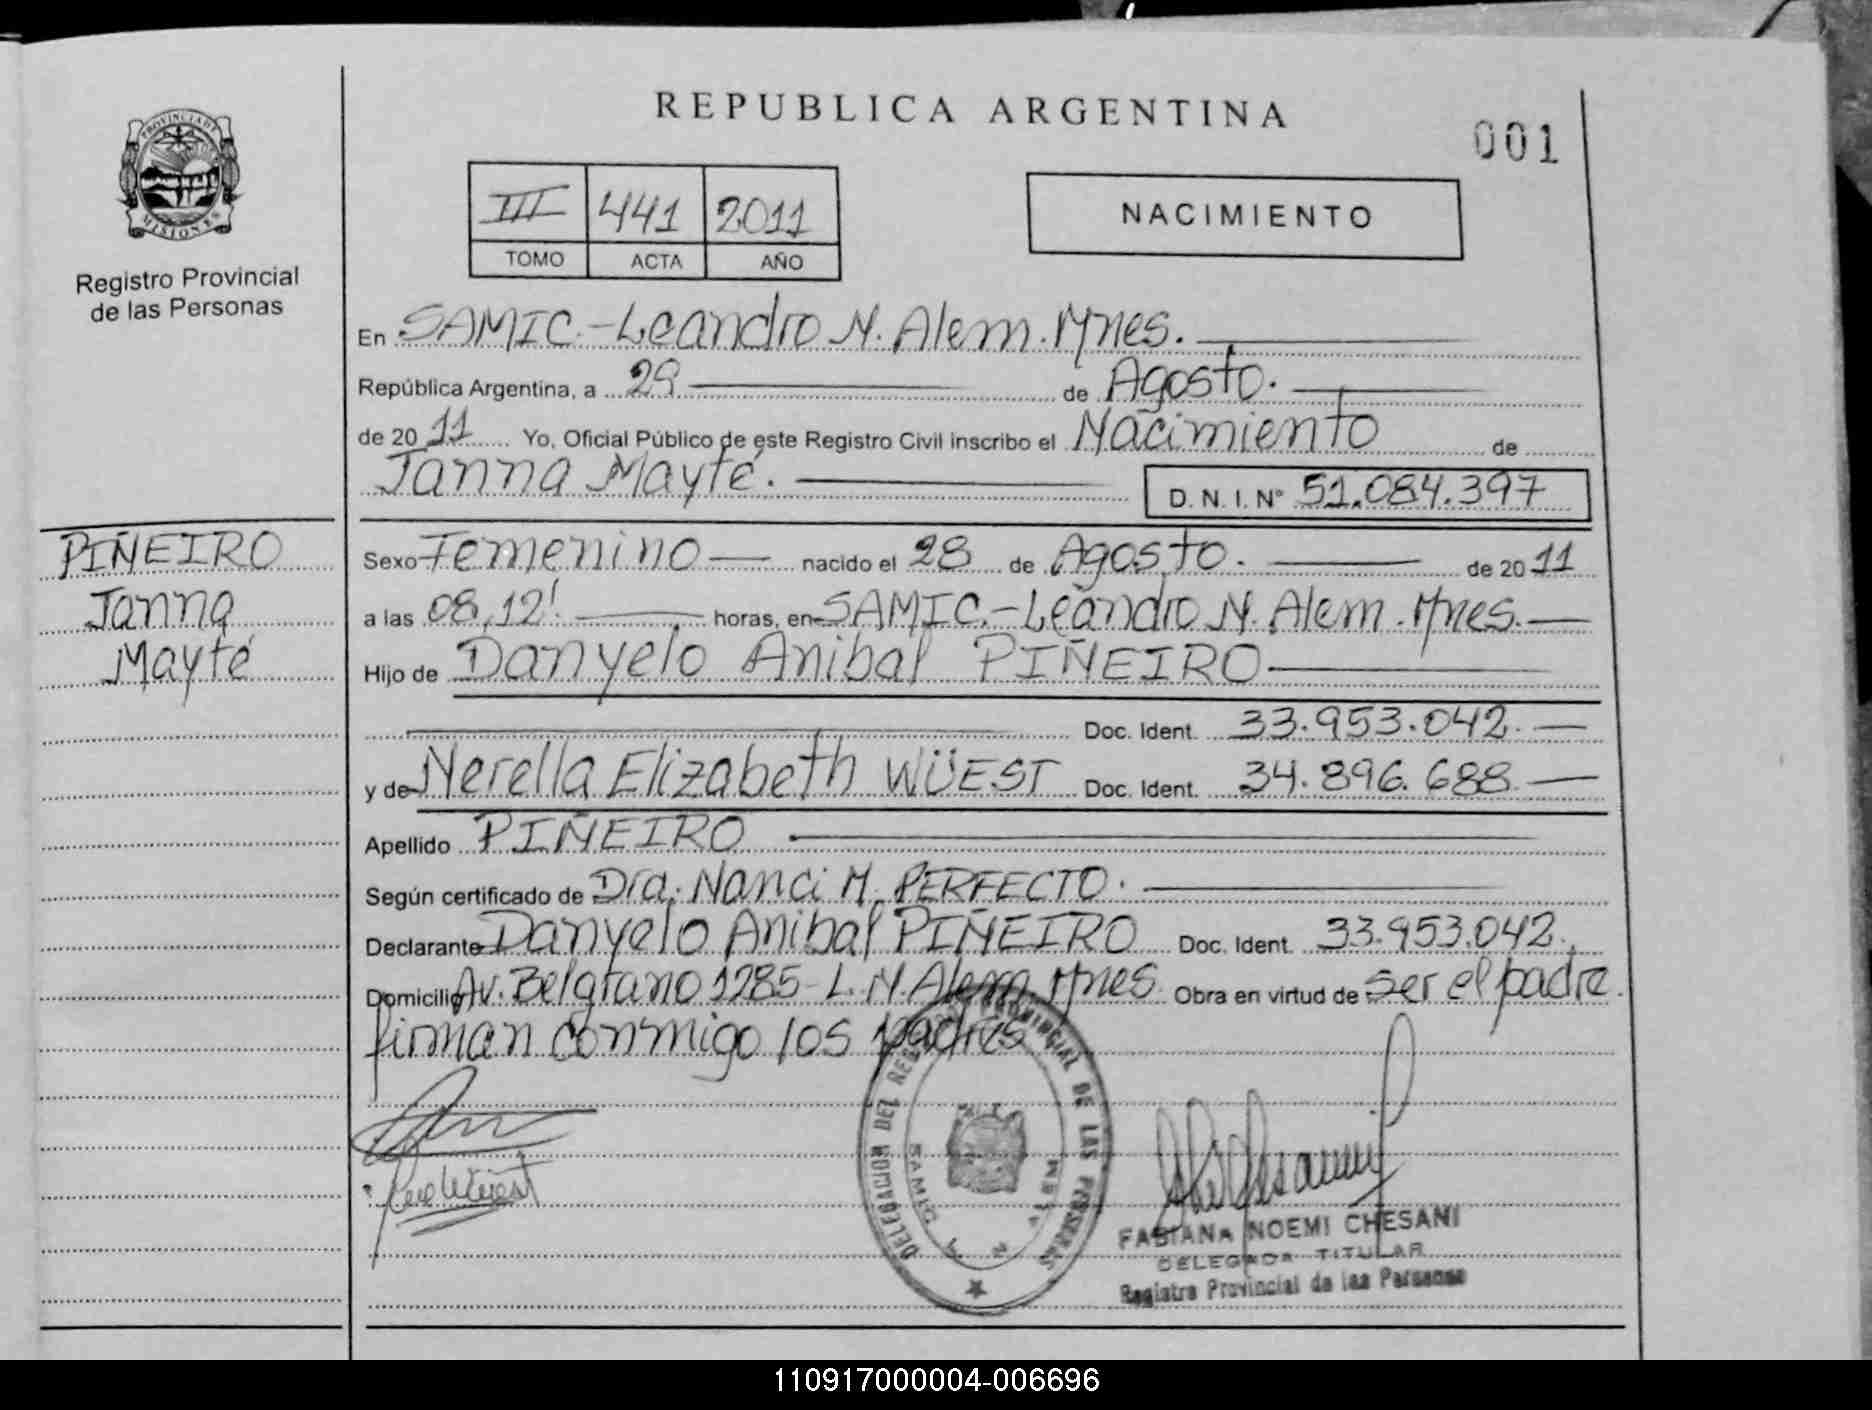 REPUBLICA ARGENTINA
001
PROVINCIA DE MISIONES
Registro Provincial
de las Personas
III 441 2011
TOMO ACTA AÑO
NACIMIENTO
En SAMIC.-Leandro N. Alem. Mnes.
República Argentina, a 29 de Agosto.
de 20 11 Yo, Oficial Público de este Registro Civil inscribo el Nacimiento de
Janna Mayté.
D. N. I. Nº 51.084.397
PIÑEIRO
Janna
Mayté
Sexo Femenino nacido el 28 de Agosto. de 20 11
a las 08,12' horas, en SAMIC.-Leandro N. Alem. Mnes.
Hijo de Danyelo Anibal PIÑEIRO
Doc. Ident. 33.953.042.
y de Nerella Elizabeth WÜEST Doc. Ident. 34.896.688
Apellido PIÑEIRO
Según certificado de Dra. Nanci M. PERFECTO.
Declarante Danyelo Anibal PIÑEIRO Doc. Ident. 33.953.042.
Domicilio Av. Belgrano 1285-L.N.Alem. Mnes Obra en virtud de ser el padre.
firman conmigo los padres
DELEGACION DEL REGISTRO PROVINCIAL DE LAS PERSONAS
SAMIC L. N. ALEM
FABIANA NOEMI CHESANI
DELEGADA TITULAR
Registro Provincial de las Personas
110917000004-006696